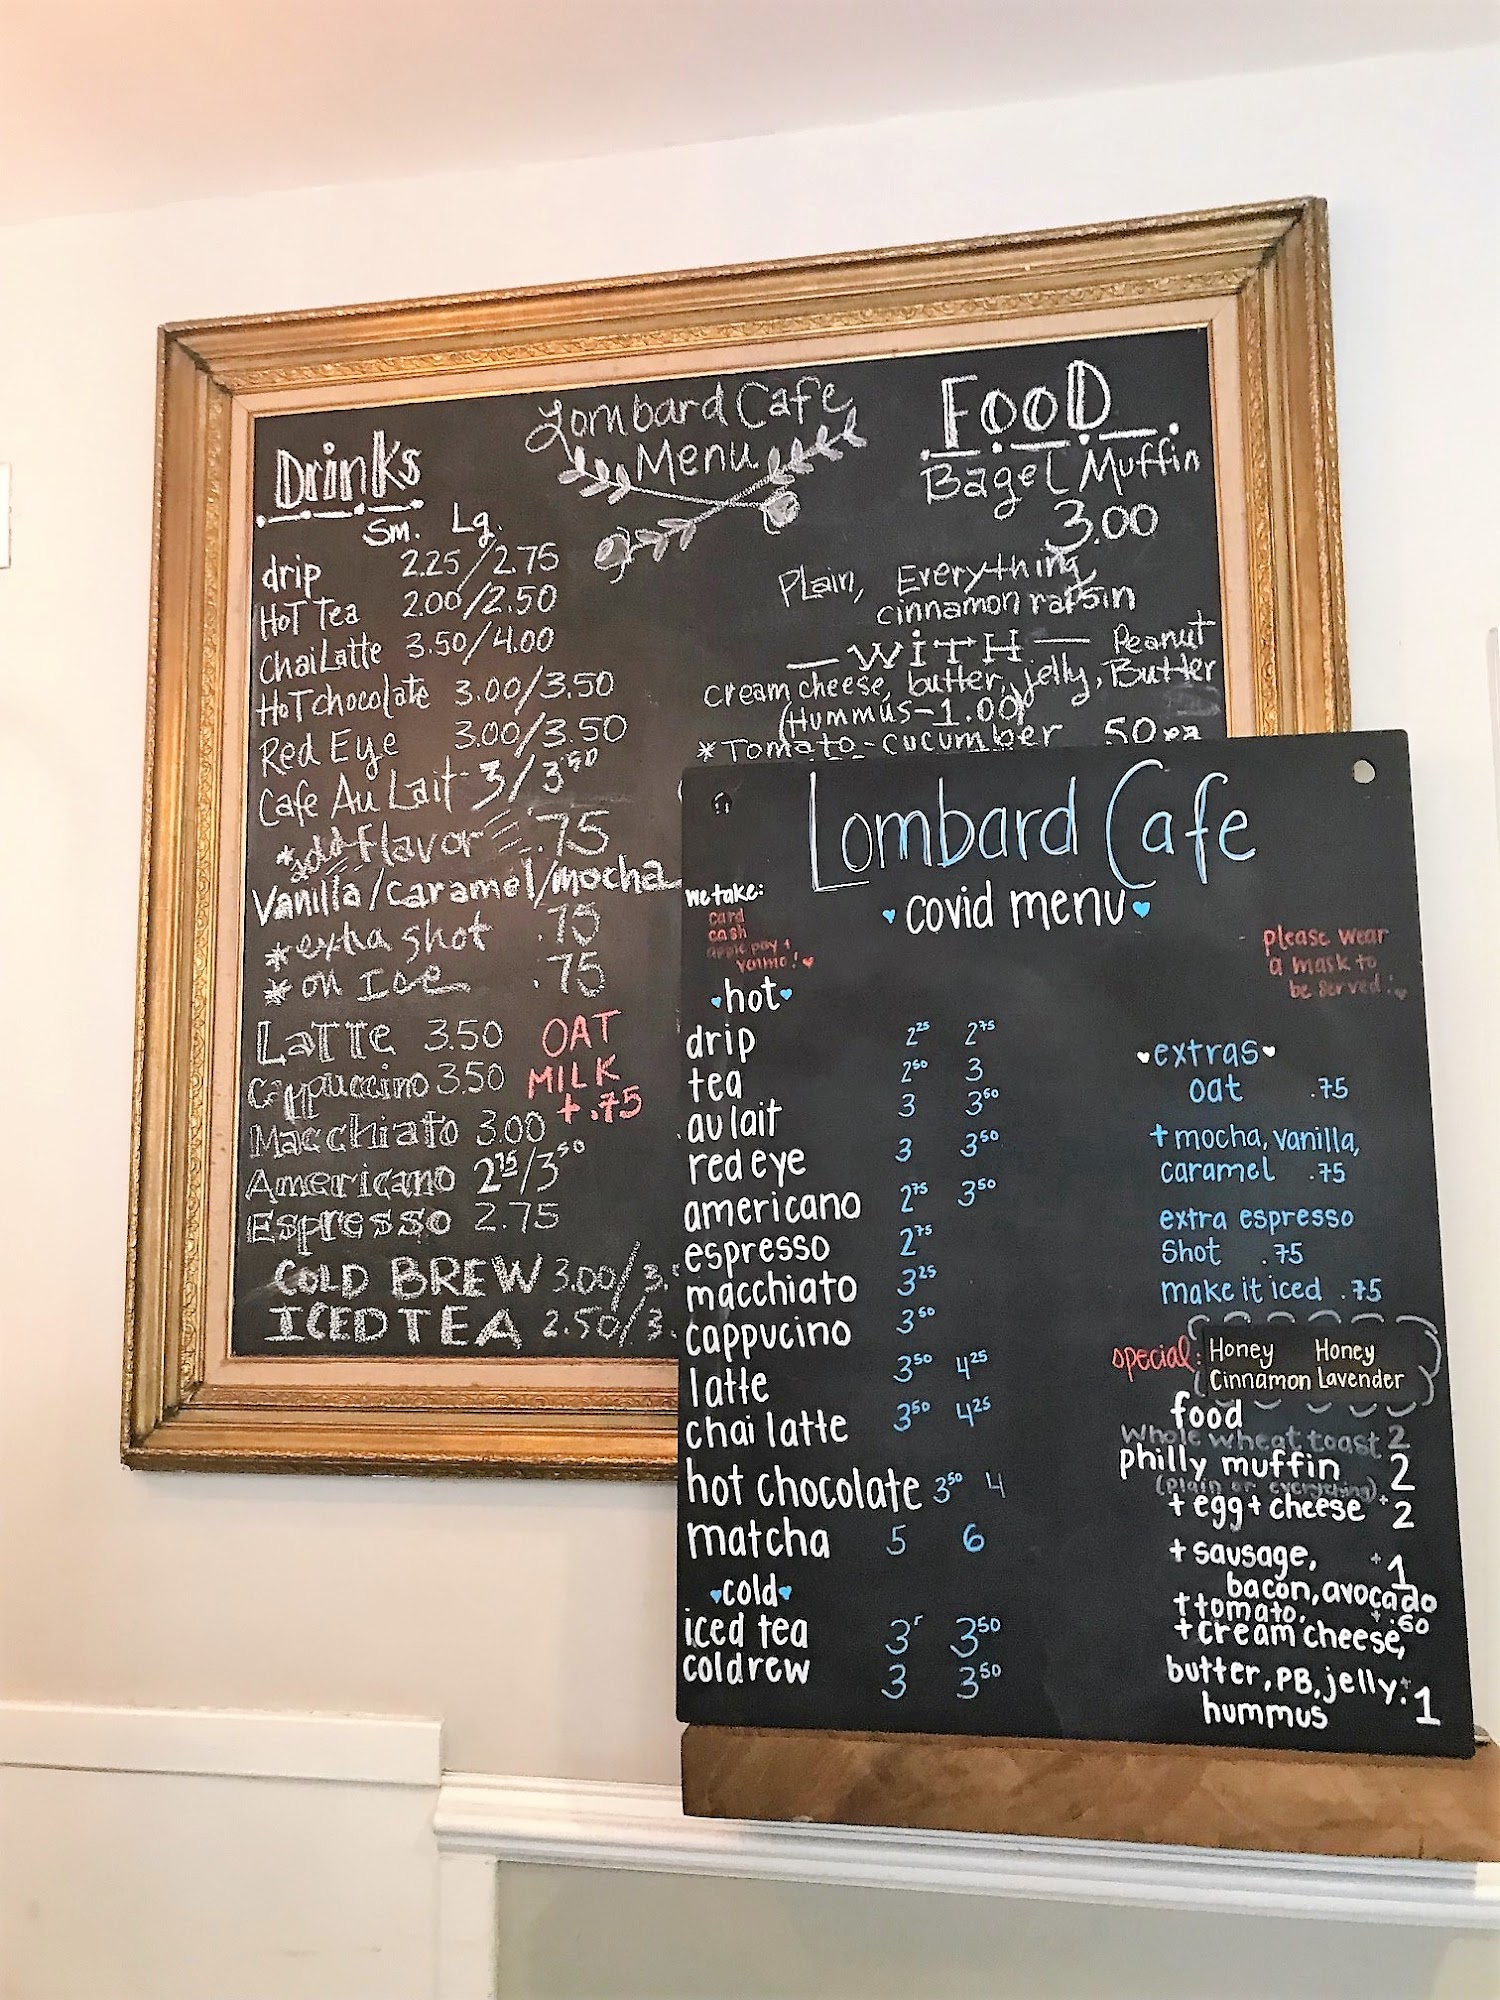 Lombard Cafe
Menu
Drinks
Sm. Lg.
drip 2.25/2.75
HoT Tea 2.00/2.50
Chai Latte 3.50/4.00
HoT chocolate 3.00/3.50
Red Eye 3.00/3.50
Cafe Au Lait 3/3.50
*add flavor .75
Vanilla/caramel/mocha
*extra shot .75
*on Ice .75
LaTTe 3.50
Cappuccino 3.50
Macchiato 3.00
Americano 2.75/3.50
Espresso 2.75
OAT
MILK
+.75
COLD BREW 3.00/3.
ICED TEA 2.50/3.
FOOD
Bagel Muffin
3.00
Plain, Everything
cinnamon raisin
— WiTH — Peanut
cream cheese, butter, jelly, Butter
(Hummus-1.00)
*Tomato-cucumber 50 ea
Lombard Cafe
covid menu
we take:
card
cash
apple pay +
venmo!
please wear
a mask to
be served!
hot
drip 2.25 2.75
tea 2.50 3
au lait 3 3.50
red eye 3 3.50
americano 2.75 3.50
espresso 2.75
macchiato 3.25
cappucino 3.50
latte 3.50 4.25
chai latte 3.50 4.25
hot chocolate 3.50 4
matcha 5 6
cold
iced tea 3 3.50
coldrew 3 3.50
extras
oat .75
+ mocha, vanilla,
caramel .75
extra espresso
shot .75
make it iced .75
special: Honey Honey
Cinnamon Lavender
food
whole wheat toast 2
philly muffin 2
(plain or everything)
+ egg + cheese +2
+ sausage, +1
bacon, avocado
+ tomato, +.50
+ cream cheese,
butter, PB, jelly +1
hummus